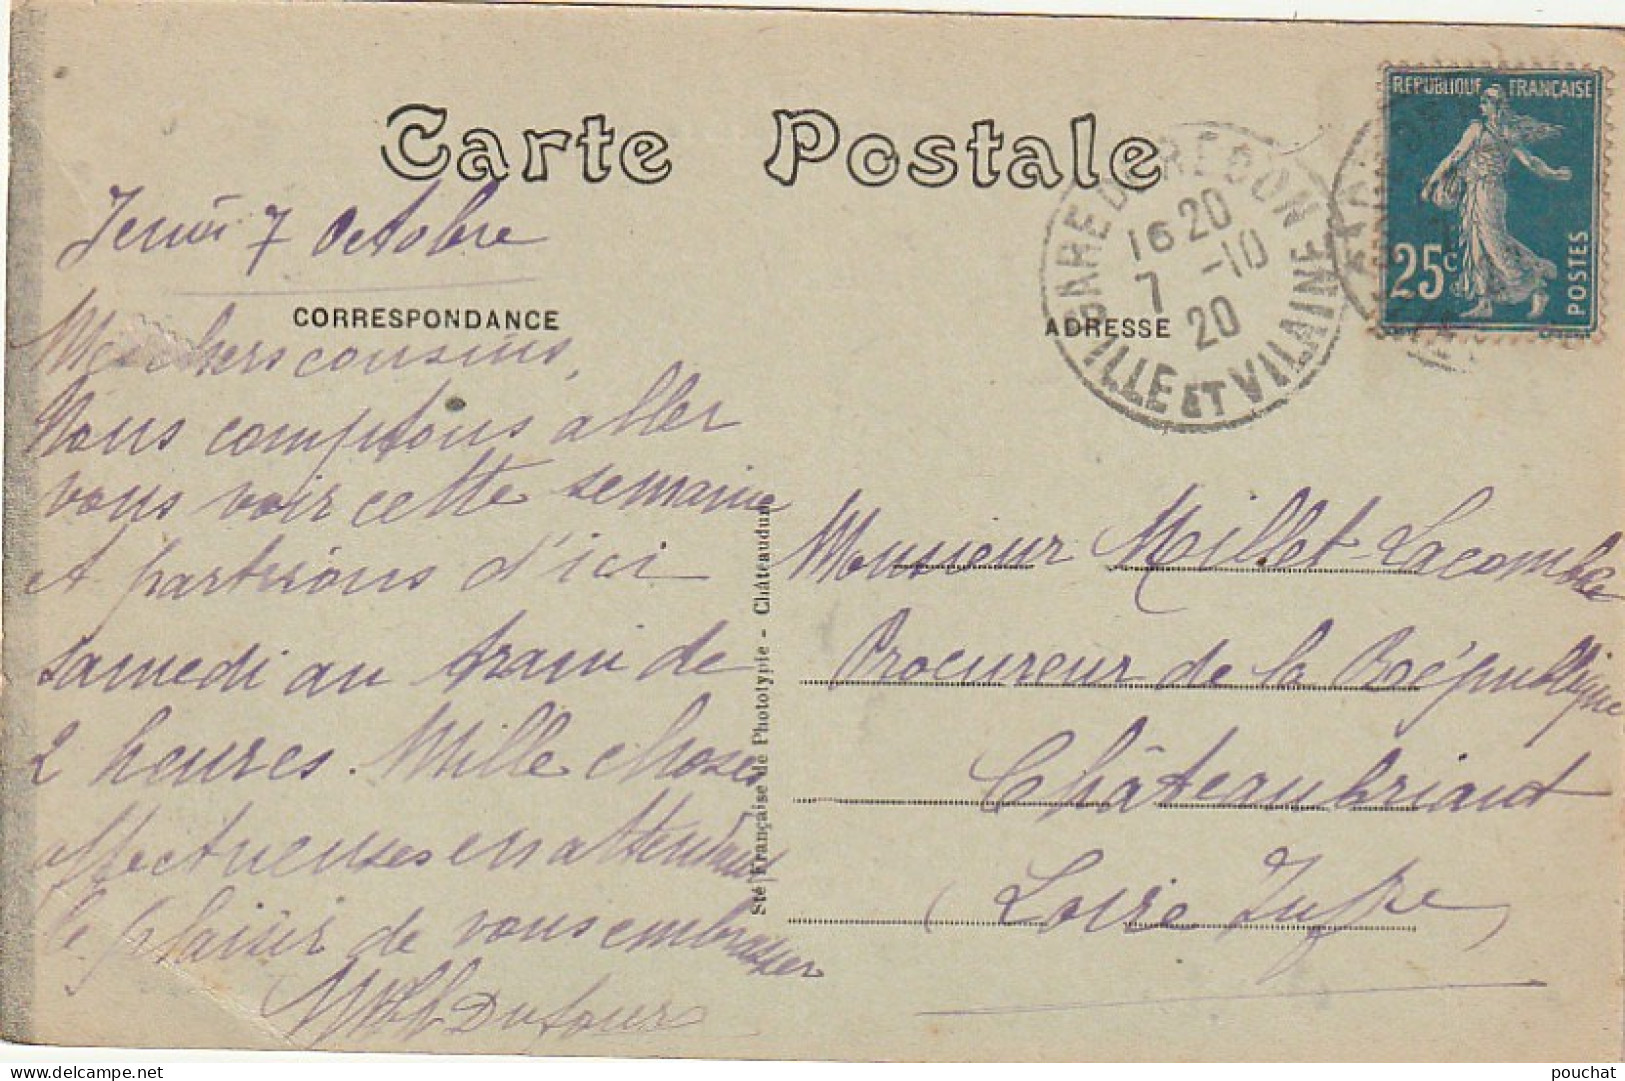 Carte Postale
RÉPUBLIQUE FRANÇAISE
25c
POSTES
GARE DE REDON
16 20
7 -10
20
ILLE ET VILAINE
Jeudi 7 Octobre
CORRESPONDANCE
Mes chers cousins,
Nous comptons aller
vous voir cette semaine
et partirions d'ici
samedi au train de
2 heures. Mille choses
affectueuses en attendant
le plaisir de vous embrasser
Dufour
Sté Française de Phototypie - Châteaudun
ADRESSE
Monsieur Millet-Lacombe
Procureur de la République
Châteaubriant
(Loire Infre)
pouchat